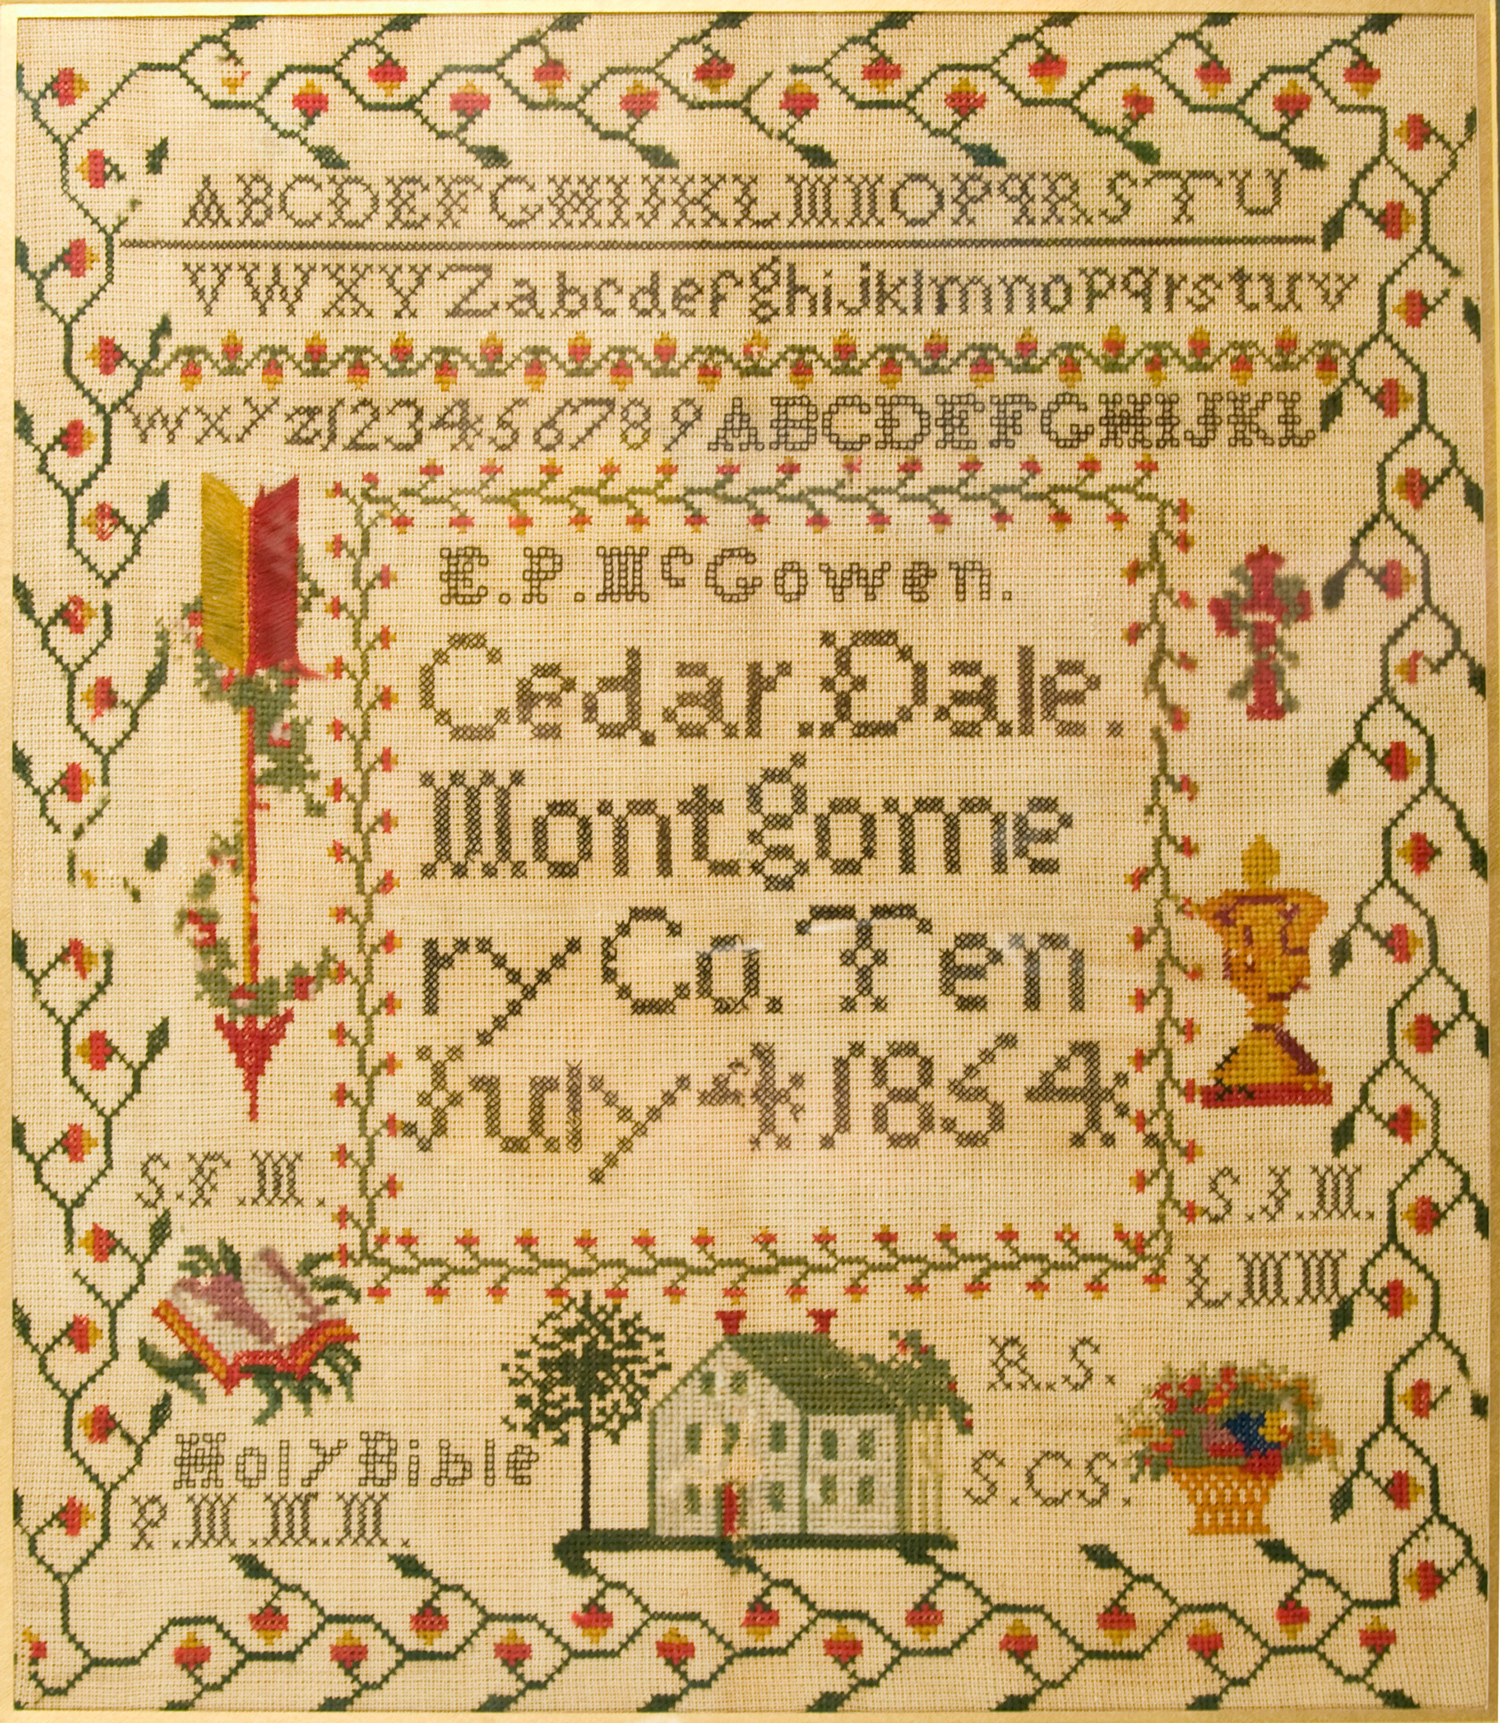 ABCDEFGHIJKLMNOPQRSTU
VWXYZabcdefghijklmnopqrstuv
wxyz123456789ABCDEFGHIJKL
E.P.McGowen.
Cedar.Dale.
Montgome
ry Co. Ten
July 4 1854
S.F.M.
S.J.M.
L.M M
R.S.
Holy Bible
S.CS.
P.M.M.M.